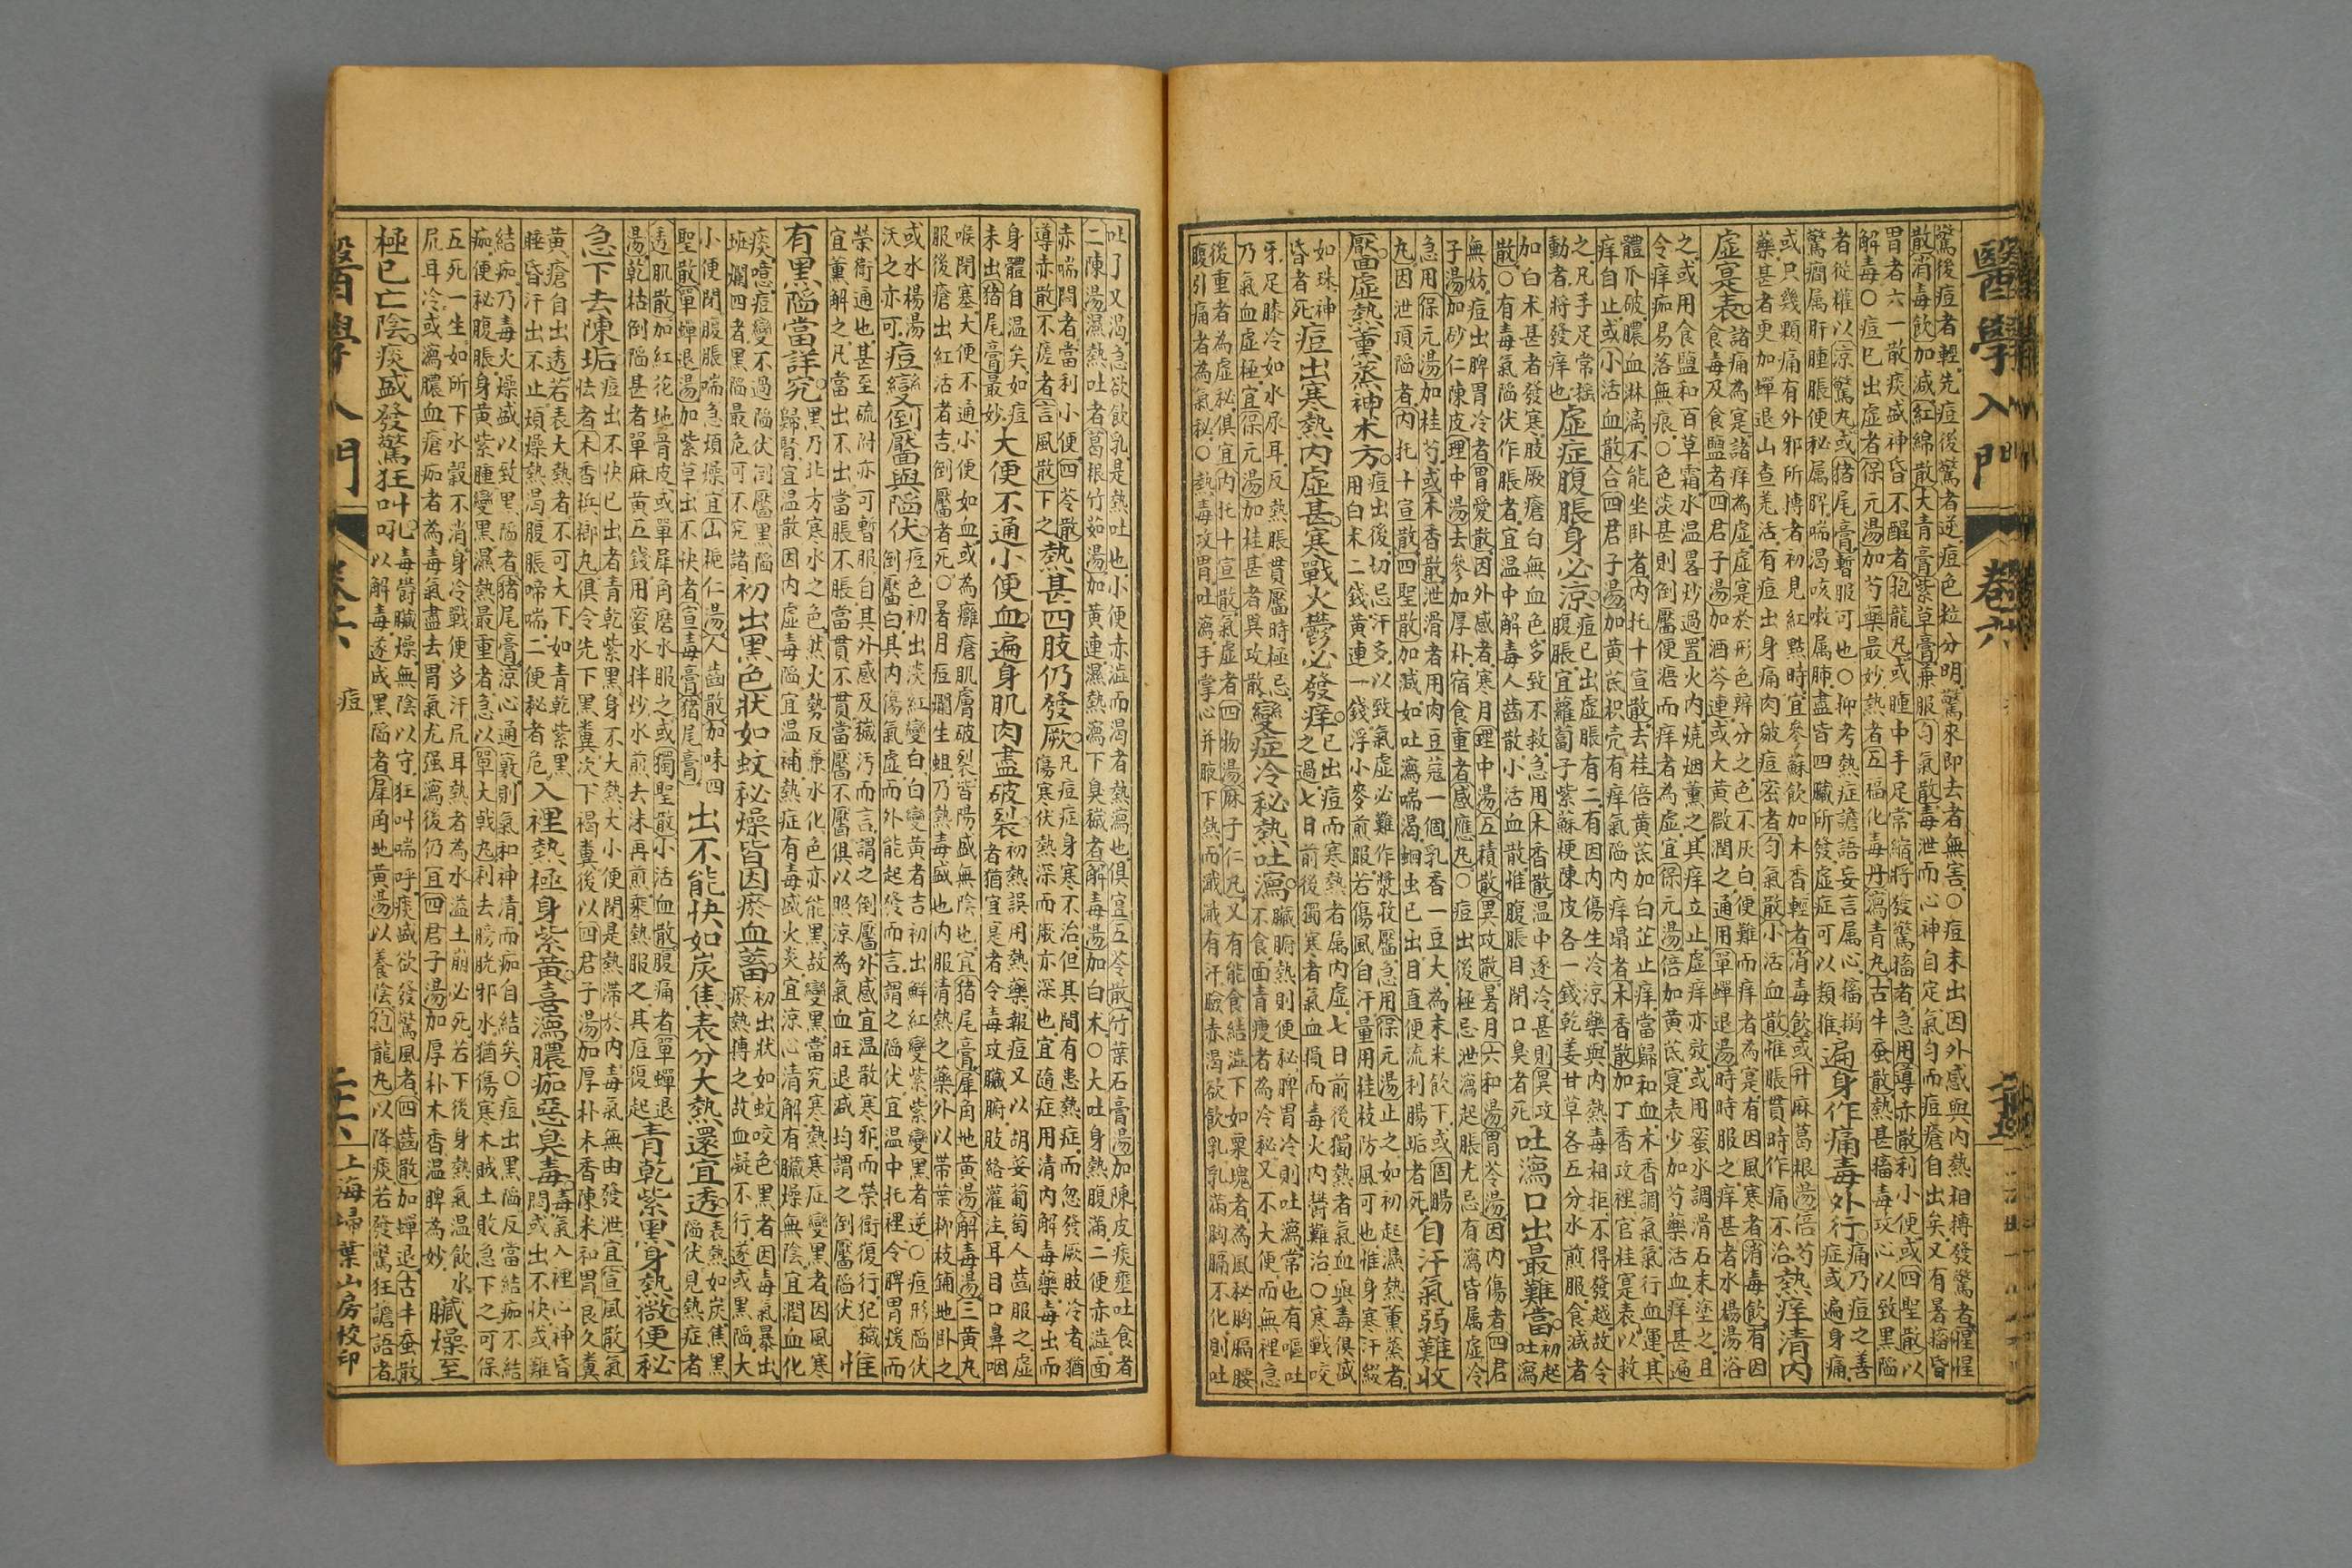 醫學入門 卷六 二十五
驚後痘者輕先痘後驚者逆痘色粒分明驚來即去者無害○痘未出因外感與內熱相搏發驚者惺惺
散消毒飲加減紅綿散大青膏紫草膏兼服勻氣散毒泄而心神自定氣勻而痘瘡自出矣又有暑搐昏
胃者六一散痰盛神昏不醒者抱龍丸或睡中手足常縮將發驚搐者急用導赤散利小便或四聖散以
解毒○痘已出虛者保元湯加芍藥最妙熱者五福化毒丹瀉青丸古牛蚕散熱甚搐毒攻心以致黑陷
者從權以涼驚丸或猪尾膏暫服可也○抑考熱症譫語妄言属心搐搦
驚癎属肝腫脹便秘属脾喘渴咳嗽属肺盡皆四臟所發虛症可以類推
遍身作痛毒外行
痛乃痘之善
症或遍身痛
或只幾顆痛有外邪所搏者初見紅㸃時宜參蘇飲加木香輕者消毒飲或升麻葛根湯倍芍
藥甚者更加蟬退山查羌活有痘出身痛肉皴痘密者勻氣散小活血散惟脹貫時作痛不治
熱痒清內
虛寔表
諸痛為寔諸痒為虛虛寔於形色辨分之色不灰白便難而痒者為寔有因風寒者消毒飲有因
食毒及食盬者四君子湯加酒芩連或大黃㣲潤之通用單蟬退湯時時服之痒甚者水楊湯浴
之或用食盬和百草霜水温畧炒過置火內燒烟薫之其痒立止虛痒亦效或用蜜水調滑石末塗之且
令痒痂易落無痕○色淡甚則倒靨便溏而痒者為虛宜保元湯倍加黃芪寔表少加芍藥活血痒甚遍
體爪破膿血淋漓不能坐卧者內托十宣散去桂倍黃芪加白芷止痒當歸和血木香調氣氣行血運其
痒自止或小活血散合四君子湯加黃芪枳壳有痒氣陷內痒塌者木香散加丁香攻裡官桂寔表以救
之凡手足常揺
動者將發痒也
虛症腹脹身必涼
痘已出虛脹有二有因內傷生冷涼藥與內熱毒相拒不得發越故令
腹脹宜蘿蔔子紫蘇梗陳皮各一錢乾姜甘草各五分水煎服食減者
加白术甚者發寒肢厥瘡白無血色多致不救急用木香散温中逐冷甚則異攻
散○有毒氣陷伏作脹者宜温中解毒人齒散小活血散惟腹脹目閉口臭者死
吐瀉口出最難當
初起
吐瀉
無妨痘出脾胃冷者胃愛散因外感者寒月理中湯五積散異攻散暑月六和湯胃苓湯因內傷者四君
子湯加砂仁陳皮理中湯去參加厚朴宿食重者感應丸○痘出後極忌泄瀉起脹尤忌有瀉皆属虛冷
急用保元湯加桂芍或木香散泄滑者用肉豆蔻一個乳香一豆大為末米飲下或固腸
丸因泄頂陷者內托十宣散四聖散加減如吐瀉喘渴蛔虫已出目直便流利腸垢者死
自汗氣弱難收
靨虛熱薫蒸神术方
痘出後切忌汗多以致氣虛必難作漿收靨急用保元湯止之如初起濕熱薫蒸者
用白术二錢黃連一錢浮小麥煎服若傷風自汗量用桂枝防風可也惟身寒汗綴
如珠神
昏者死
痘出寒熱內虛甚寒戰火鬱必發痒
已出痘而寒熱者属內虛七日前後獨熱者氣血與毒俱盛
之過七日前後獨寒者氣血損而毒火內鬱難治○寒戰咬
牙足膝冷如水尿耳反熱脹貫靨時極忌
乃氣血虛極宜保元湯加桂甚者異攻散
變症冷秘熱吐瀉
臟腑熱則便秘脾胃冷則吐瀉常也有嘔吐
不食面青瘦者為冷秘又不大便而無裡急
後重者為虛秘俱宜內托十宣散氣虛者四物湯麻子仁丸又有能食結澁下如粟塊者為風秘胸膈腰
腹引痛者為氣秘○熱毒攻胃吐瀉手掌心并腋下熱而濈濈有汗臉赤渴欲飲乳乳滿胸膈不化則吐
吐了又渴急欲飲乳是熱吐也小便赤澁而渴者熱瀉也俱宜五苓散竹葉石膏湯加陳皮痰壅吐食者
二陳湯濕熱吐者葛根竹茹湯加黃連濕熱瀉下臭穢者解毒湯加白术○大吐身熱腹滿二便赤澁面
赤喘悶者當利小便四苓散
導赤散不瘥者言風散下之
熱甚四肢仍發厥
凡痘症身寒不治但其間有患熱症而忽發厥肢冷者猶
傷寒伏熱深而厥亦深也宜隨症用清內解毒藥毒出而
身體自温矣如痘
未出猪尾膏最妙
大便不通小便血遍身肌肉盡破裂
初熱誤用熱藥報痘又以胡荽葡萄人齒服之虛
者猶宜是者令毒攻臟腑肢絡灌注耳目口鼻咽
喉閉塞大便不通小便如血或為癰瘡肌膚破裂皆陽盛無陰也宜猪尾膏犀角地黃湯解毒湯三黃丸
服後瘡出紅活者吉倒靨者死○暑月痘爛生蛆乃熱毒盛也內服清熱之藥外以帶葉柳枝鋪地卧之
或水楊湯
沃之亦可
痘變倒靨與陷伏
痘色初出淡紅變白白變黃者吉初出鮮紅變紫紫變黑者逆○痘形陷伏
倒靨白其內傷氣虛而外能起發而言謂之陷伏宜温中托裡令脾胃煖而
榮衛通也甚至硫附亦可暫服自其外感及穢汚而言謂之倒靨外感宜温散寒邪而榮衛復行犯穢
宜薫解之凡當出不出當脹不脹當貫不貫當靨不靨俱以照涼為氣血旺退减均謂之倒靨陷伏
惟
有黑陷當詳究
黑乃北方寒水之色㷊火勢反兼水化色亦能黑故變黑當究寒熱寒症變黑者因風寒
歸腎宜温散因內虛毒陷宜温補熱症有毒盛火炎宜涼心清解有臟燥無陰宜潤血化
痰噫痘變不過陷伏倒靨黑陷
斑爛四者黑陷最危可不究諸
初出黑色狀如蚊秘燥皆因瘀血蓄
初出狀如蚊咬色黑者因毒氣暴出
瘀熱摶之故血凝不行遂或黑陷大
小便閉腹脹喘急煩燥宜山梔仁湯人齒散加味四
聖散單蟬退湯加紫草出不快者宣毒膏猪尾膏
出不能快如炭焦表分大熱還宜透
表熱如炭焦黑
陷伏見熱症者
透肌散加紅花地骨皮或單犀角磨水服之或獨聖散小活血散腹痛者單蟬退
湯乾枯倒陷甚者單麻黃五錢用蜜水拌炒水煎去沫再煎乘熱服之其痘復起
青乾紫黑身熱㣲便秘
急下去陳垢
痘出不快已出者青乾紫黑身不大熱大小便閉是熱滯於內毒氣無由發泄宜宣風散氣
怯者木香梹榔丸俱令先下黑糞次下褐糞後以四君子湯加厚朴木香陳米和胃良久糞
黃瘡自出透若表大熱者不可大下如青乾紫黑
睡昏汗出不止煩燥熱渴腹脹啼喘二便秘者危
入裡熱極身紫黃喜瀉膿痂惡臭毒
毒氣入裡心神昏
悶或出不快或難
結痂乃毒火燥盛以致黑陷者猪尾膏涼心通竅則氣和神清而痂自結矣○痘出黑陷反當結痂不結
痂便秘腹脹身黃紫腫變黑濕熱最重者急以單大戟丸利去膀胱邪水猶傷寒木賊土敗急下之可保
五死一生如所下水穀不消身冷戰便多汗尻耳熱者為水溢土崩必死若下後身熱氣温飲水
尻耳冷或瀉膿血瘡痂者為毒氣盡去胃氣尤强瀉後仍宜四君子湯加厚朴木香温脾為妙
臟燥至
極已亡陰痰盛發驚狂叫吼
毒鬱臟燥無陰以守狂叫喘呼痰盛欲發驚風者四齒散加蟬退古牛蚕散
以解毒遂成黑陷者犀角地黃湯以養陰抱龍丸以降痰若發驚狂譫語者
醫學入門 卷六 痘 二十六 上海埽葉山房校印